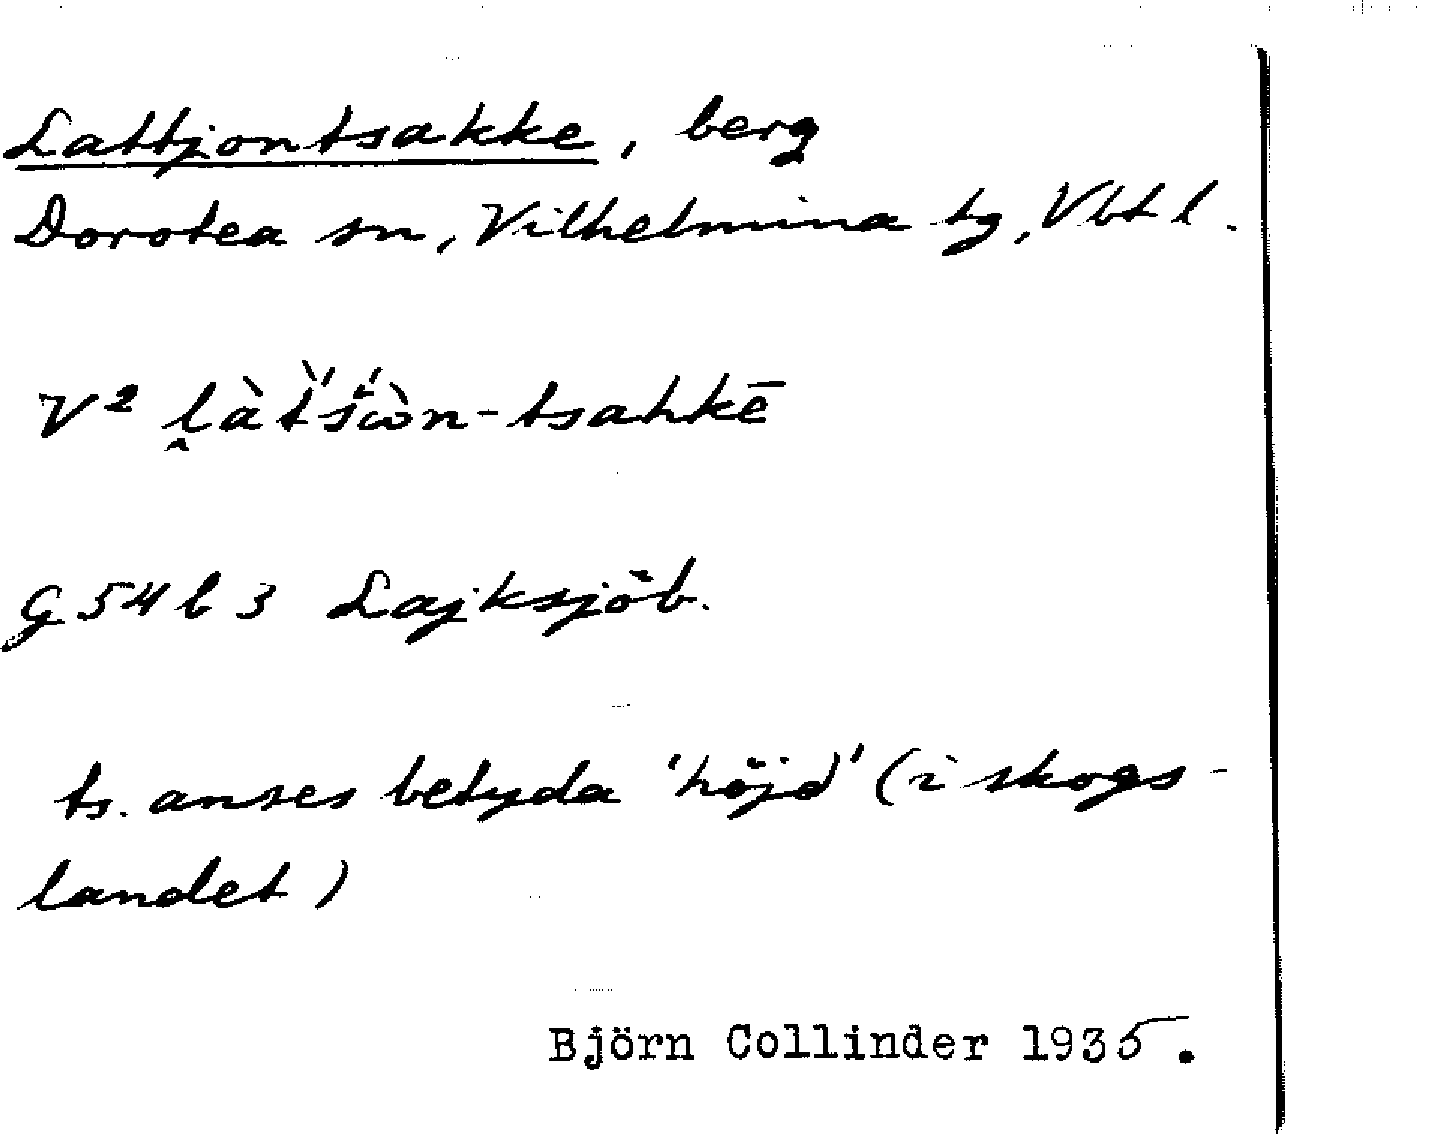 Lattjontsakke, berg
Dorotea sn, Vilhelmina tg, Vbtl.
V² l̯àt̀'śẃòn-tsahkē
G 54 b 3 Lajksjöb.
ts. anses betyda 'höjd' (i skogs-
landet)
Björn Collinder 1935.